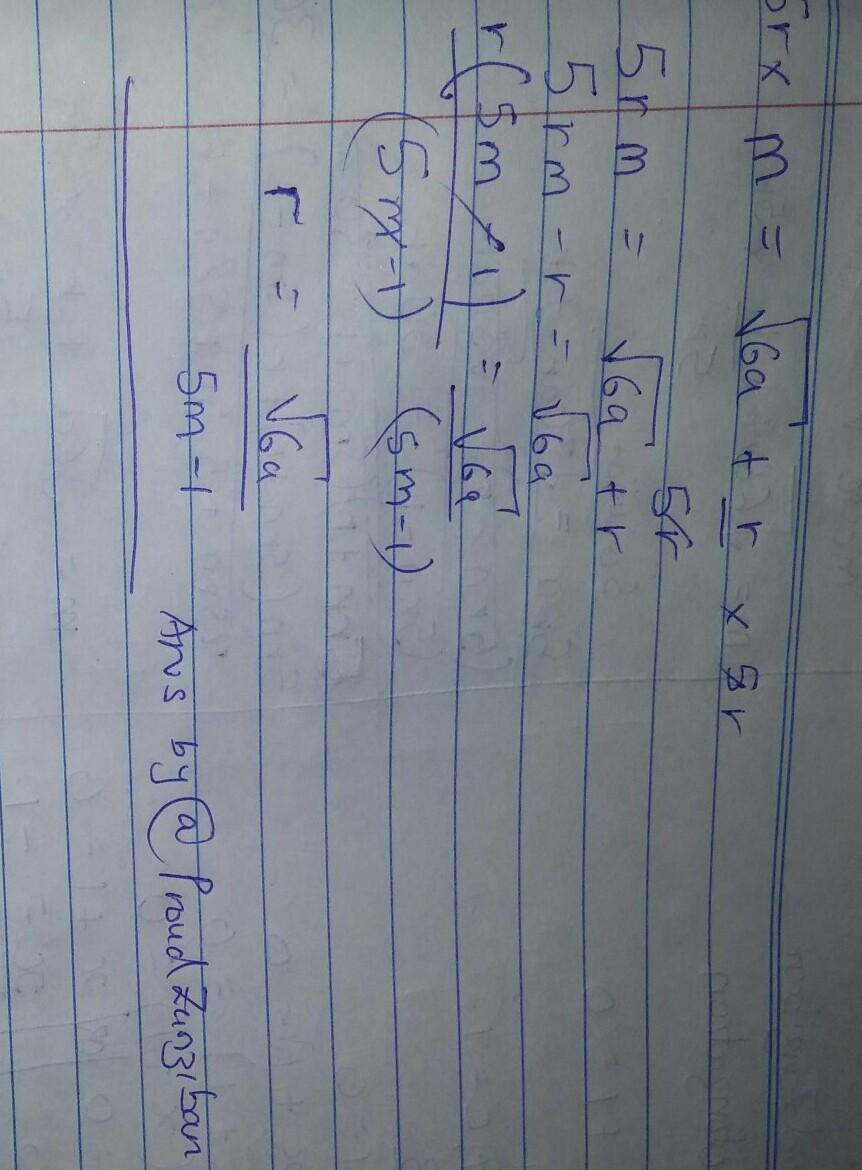 5r x m = √6a + r x 5r
5r
5rm = √6a + r
5rm - r = √6a
r(5m - 1) = √6a
(5m - 1) (5m - 1)
r = √6a
5m - 1
Ans by @Proudzanziban